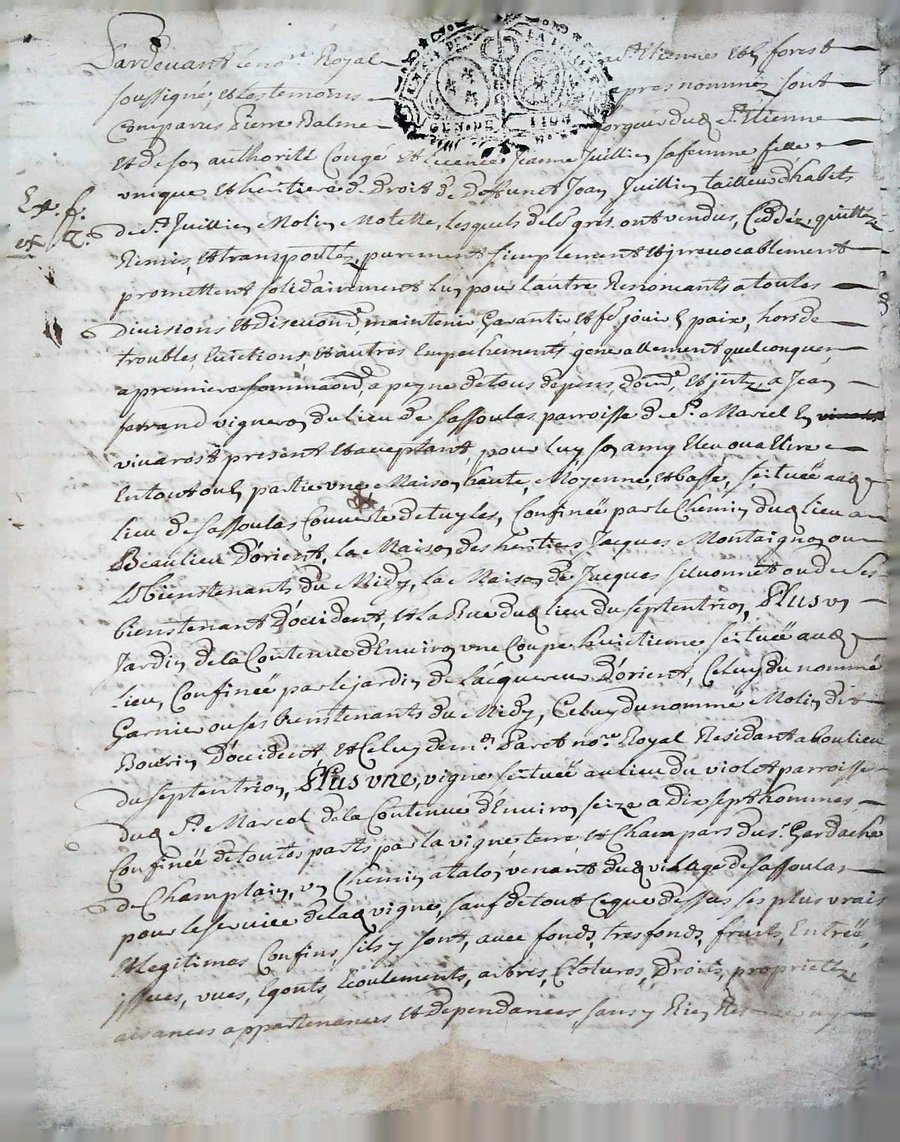 Pardevant le no.re Royal a St. Etienne et en forest
soussigné, et les temoins apres nommés sont
Comparus Pierre Balme forgeur dud. St. Etienne
GEN. DE
Et de son authorité Congé et licence Jeanne Juillien sa femme fille
unique et heritiere de Droit de deffunct Jean Juillien tailleur d'habits
de St. Juillien Molin Molette, lesquels de leur gré, ont vendus, Ceddéz, quittéz
Remis, et transportéz, purement simplement et irrevocablement
promettent solidairement l'un pour l'autre Renonçants a toutes
Divisions et discution, maintenir Garantir et fe. jouir en paix, hors de
troubles, Evictions et autres Empechements generallement quelconques
a premiere sommaon., a peyne de tous depens, et a Jean
ferrand vigneron du lieu de Sassoulas parroisse de St. Marcel en
vivarest present et acceptant, pour luy son amy Eleu ou a Elire
En tout ou en partie une Maison haute, Moyenne, et basse, scituée aud.
lieu de Sassoulas Couverte de tuyles, Confinée par le Chemin dud. lieu a
Beaulieu D'orient, la Maison des heritiers Jacques Montaignon ou
bienstenants du Midy, la Maison de Jacques Siluonnet ou de ses
bienstenant D'occident, et la Rue dud. lieu du septentrion, Plus un
Jardin de la Contenue d'Environ une Coupe huictieme scituée aud.
lieu, Confinée par le jardin de l'acquereur D'orient, Celuy du nommé
Garnier ou ses bienstenants du Midy, Celuy du nommé Molin dit
Bourrin D'occident, et Celuy de m.e Paret no.re Royal Residant a boulieu
du septentrion, Plus une, vigne scituée au lieu du violet parroisse
dud. St. Marcel de la Contenue d'Environ seize a dix sept hommes
Confinée de toutes parts par la vigne terre et Cham pars du sr. Gardache
de Champlain, un Chemin a talon venant dud. village de Sassoulas
pour le service de lad. vigne, sauf de tout Ce que dessus ses plus vrais
Et legitimes Confins, s'ils y sont, avec fonds, tresfonds, fruits, Entrées,
issues, vues, Egouts, Ecoulements, arbres, Clotures, Droits, proprietéz,
aisances appartenances et dependances sans y Rien